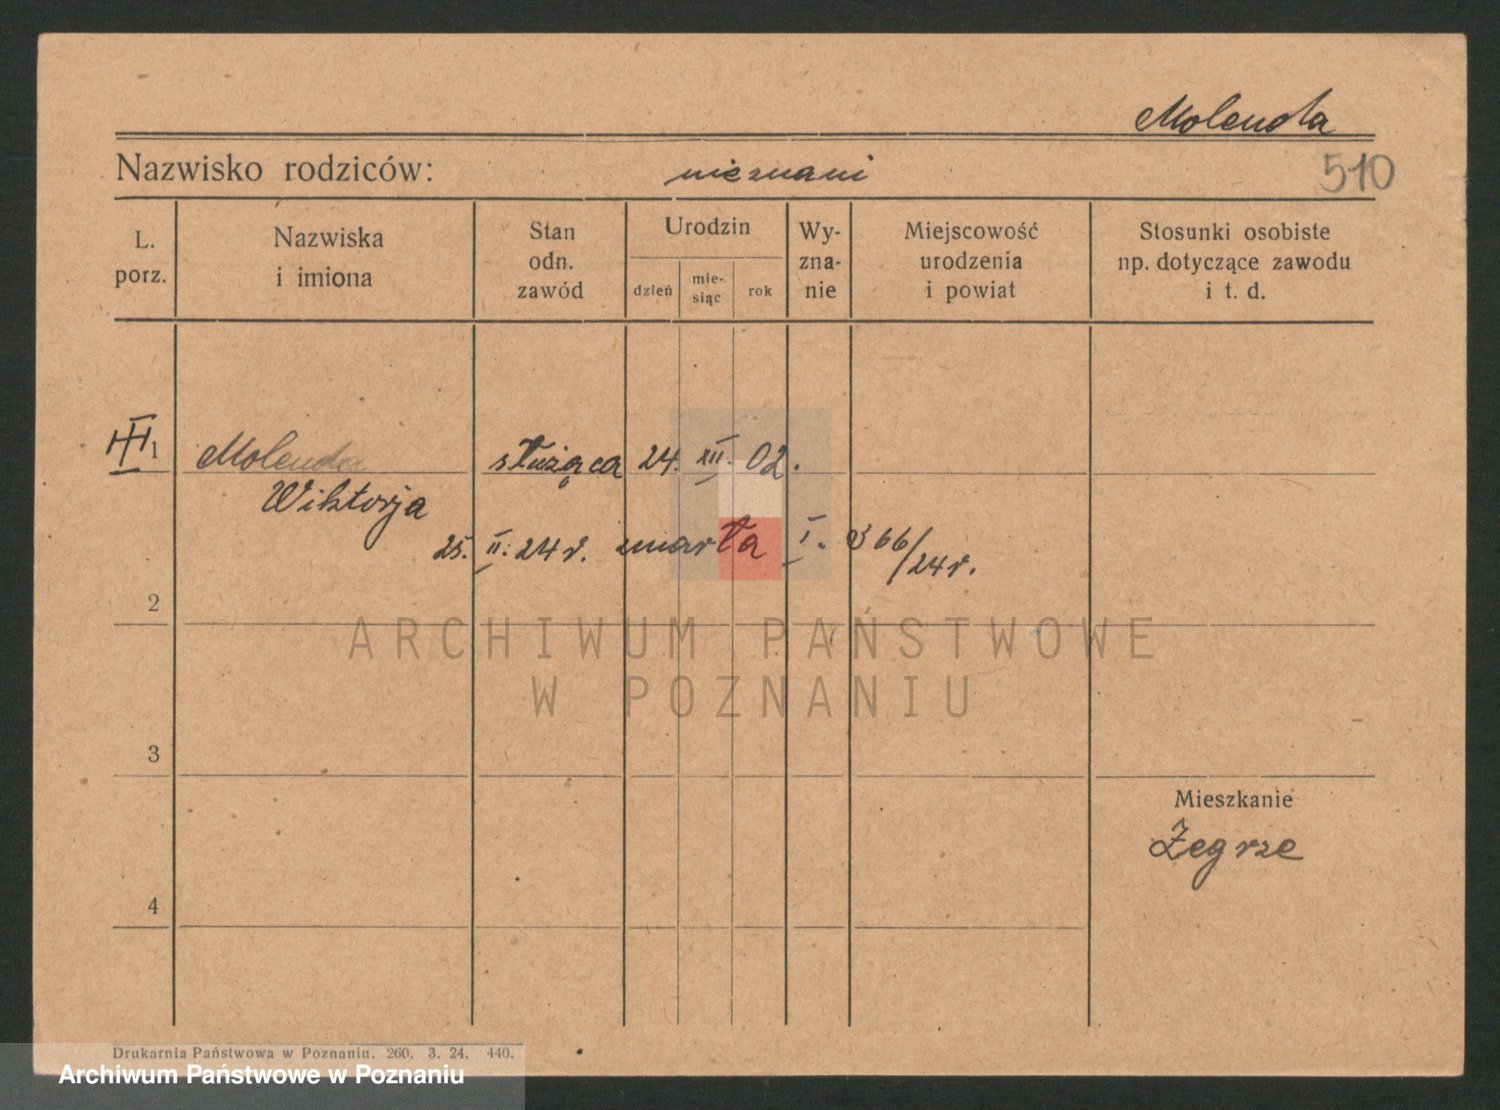 Molenda
Nazwisko rodziców: nieznani
510
L. porz.
Nazwiska i imiona
Stan odn. zawód
Urodzin
dzień
mie-siąc
rok
Wy-zna-nie
Miejscowość urodzenia i powiat
Stosunki osobiste np. dotyczące zawodu i t. d.
1 Molenda służąca 24. XII. 02.
Wiktorja
25. II. 24 r. zmarła I. 366/24 r.
2
ARCHIWUM PAŃSTWOWE
W POZNANIU
3
Mieszkanie
Żegrze
4
Drukarnia Państwowa w Poznaniu. 260. 3. 24. 440.
Archiwum Państwowe w Poznaniu